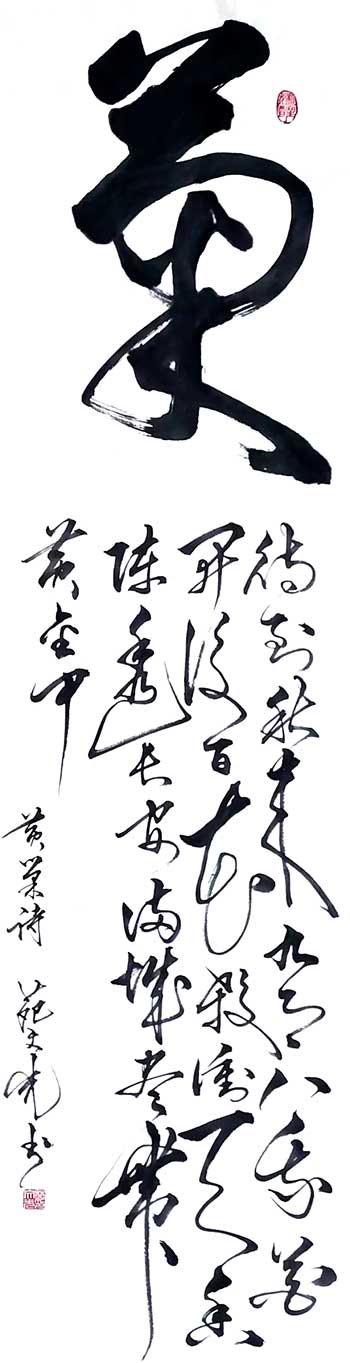 菊
待到秋来九月八我花
开後百花殺衝天香
陣透长安满城尽带
黄金甲
黄巢诗 文 书